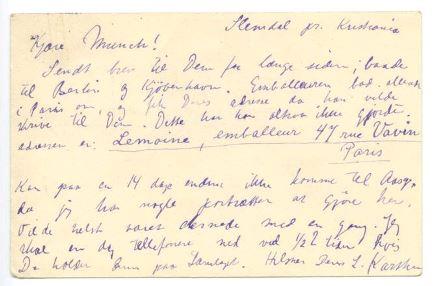 Slemdal pr. Kristiania
Kjære Munch!
Sendt brev til Dem for længe siden, baade
til Berlin og Kjøbenhavn. Emballeuren bad
i Paris om, fik Deres adresse da han vilde
skrive til Dem. Dette har han altsaa ikke gjort.
adressen er: Lemoine, emballeur 47 rue Vavin
Paris
Kan paa en 14 dage endnu ikke komme til
da jeg har nogle portrætter at gjøre her.
Vilde helst være dernede med en gang. Jeg
skal en dag telefonere ned ved 1/2 2 tiden hvis
De holder Hilsner Deres L. Karsten